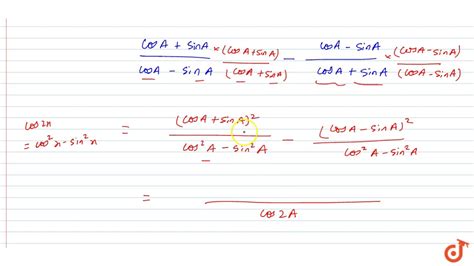 cosA + sinA / cosA - sinA × (cosA + sinA) / (cosA + sinA) - cosA - sinA / cosA + sinA × (cosA - sinA) / (cosA - sinA)
cos2x = cos²x - sin²x
= (cosA + sinA)² / cos²A - sin²A - (cosA - sinA)² / cos²A - sin²A
= / cos2A